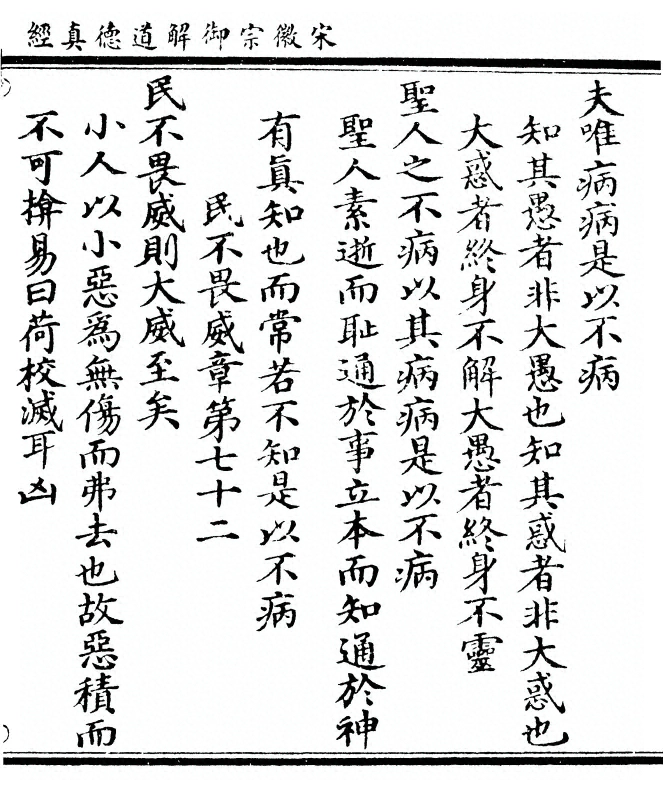 宋徽宗御解道德真經
夫唯病病是以不病
知其愚者非大愚也知其惑者非大惑也
大惑者終身不解大愚者終身不靈
聖人之不病以其病病是以不病
聖人素逝而恥通於事立本而知通於神
有真知也而常若不知是以不病
民不畏威章第七十二
民不畏威則大威至矣
小人以小惡為無傷而弗去也故惡積而
不可揜易曰荷校滅耳凶